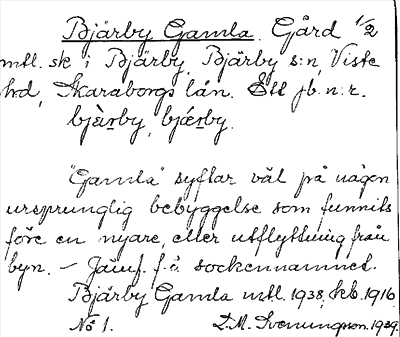 Bjärby Gamla. Gård 1/2
mtl. sk i Bjärby, Bjärby s:n, Viste
hd, Skaraborgs län. Ett jb. n:r.
bjà̱rby, bjǽrby.
"Gamla" syftar väl på någon
ursprunglig bebyggelse som funnits
före en nyare, eller utflyttning från
byn. – Jämf. f. ö. sockennamnet.
Bjärby Gamla mtl. 1938, kb. 1916
No 1. D. M. Svenungsson. 1939.